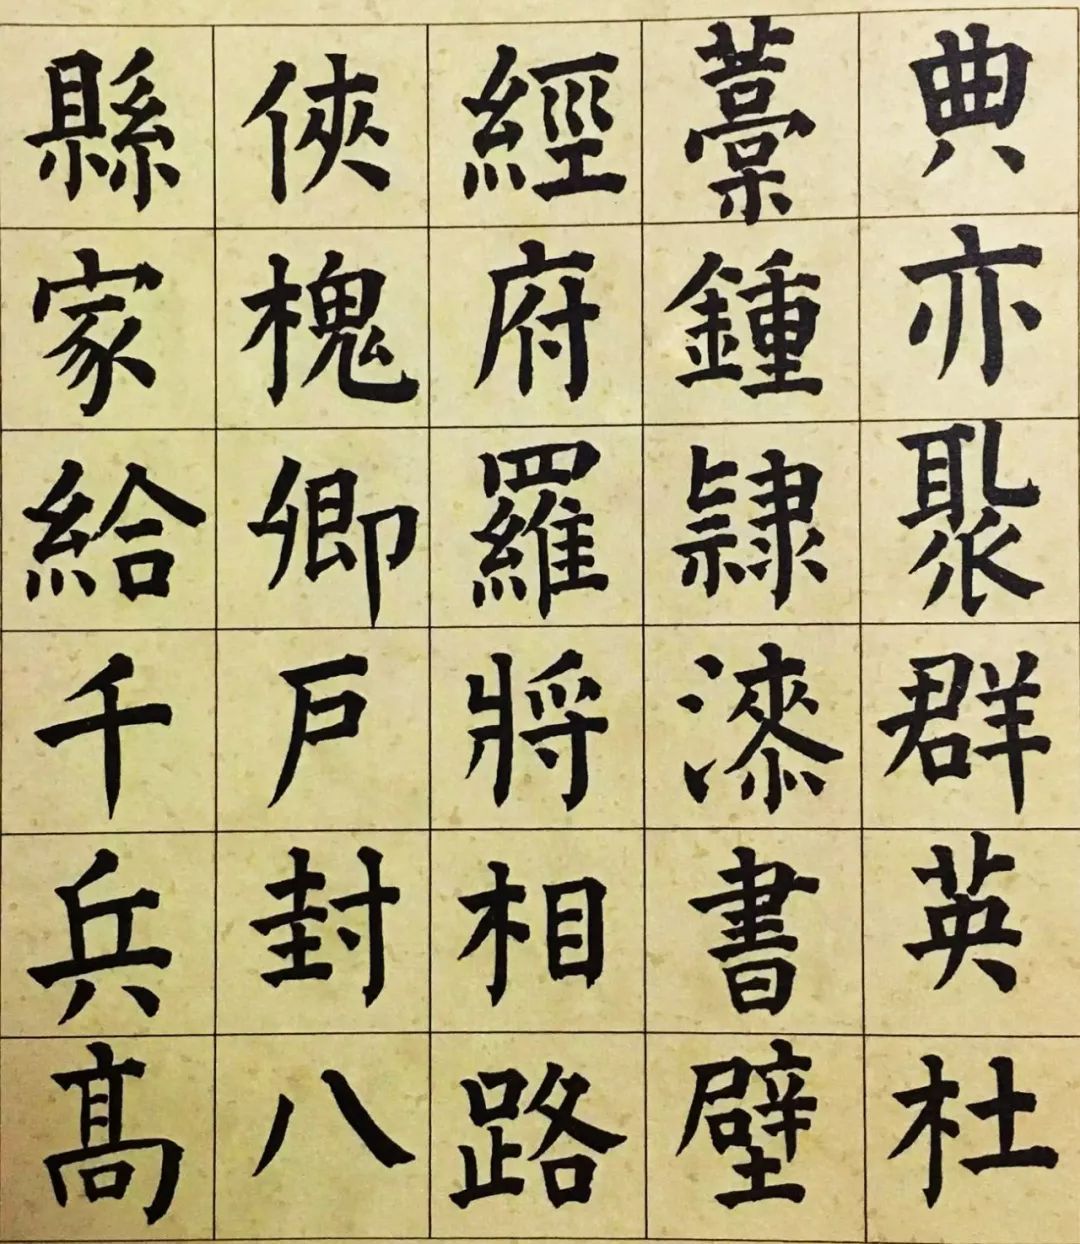 典亦聚群英杜
藁鍾隸漆書壁
經府羅將相路
俠槐卿戶封八
縣家給千兵高